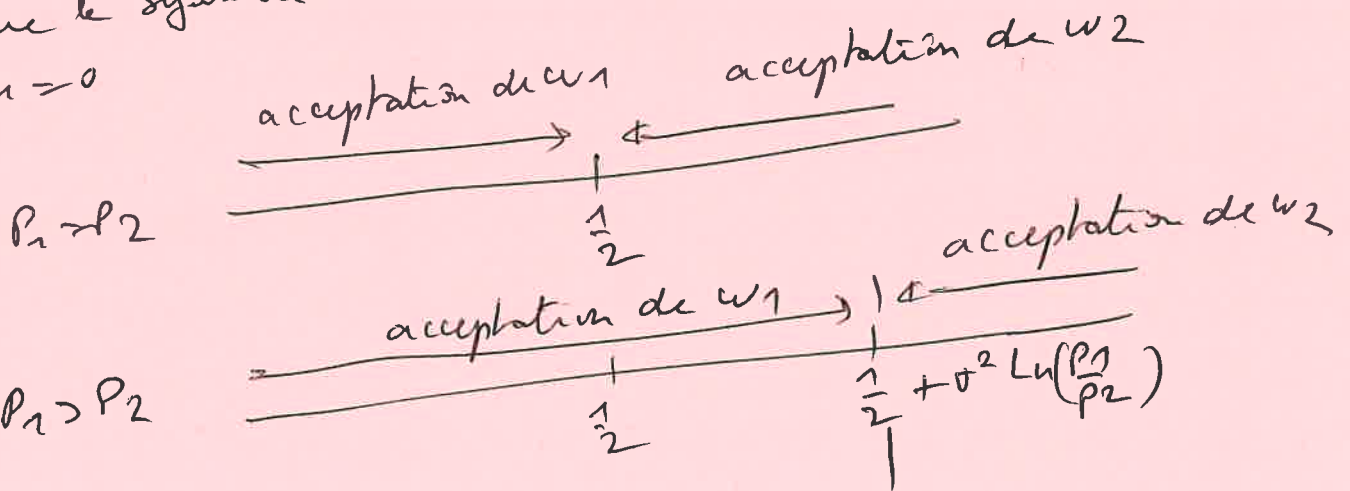 le
= 0
acceptation de w1
acceptation de w2
P1 = P2
1/2
acceptation de w2
acceptation de w1
P1 > P2
1/2
1/2 + σ² Ln(P1/P2)